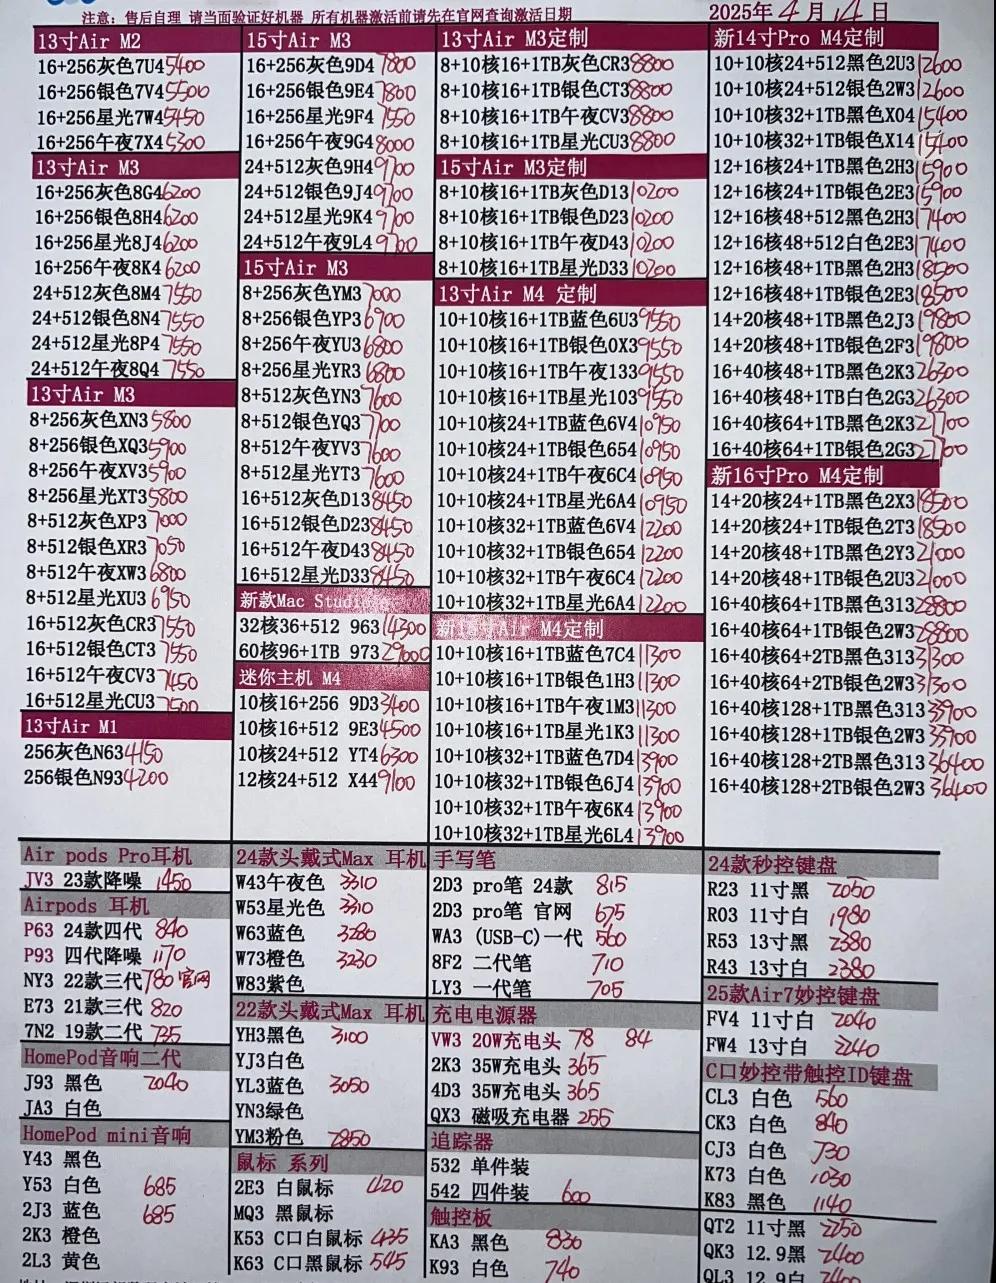 注意：售后自理 请当面验证好机器 所有机器激活前请先在官网查询激活日期
2025年4月14日
13寸Air M2
16+256灰色7U4 5400
16+256银色7V4 5500
16+256星光7W4 5450
16+256午夜7X4 5300
13寸Air M3
16+256灰色8G4 6200
16+256银色8H4 6200
16+256星光8J4 6200
16+256午夜8K4 6200
24+512灰色8M4 7550
24+512银色8N4 7550
24+512星光8P4 7550
24+512午夜8Q4 7550
13寸Air M3
8+256灰色XN3 5800
8+256银色XQ3 5900
8+256午夜XV3 5900
8+256星光XT3 5800
8+512灰色XP3 7000
8+512银色XR3 7050
8+512午夜XW3 6800
8+512星光XU3 6950
16+512灰色CR3 7550
16+512银色CT3 7550
16+512午夜CV3 7450
16+512星光CU3 7500
13寸Air M1
256灰色N63 4150
256银色N93 4200
15寸Air M3
16+256灰色9D4 7800
16+256银色9E4 7800
16+256星光9F4 7550
16+256午夜9G4 8000
24+512灰色9H4 9700
24+512银色9J4 9700
24+512星光9K4 9700
24+512午夜9L4 9700
15寸Air M3
8+256灰色YM3 7000
8+256银色YP3 6900
8+256午夜YU3 6800
8+256星光YR3 6800
8+512灰色YN3 7600
8+512银色YQ3 7700
8+512午夜YV3 7600
8+512星光YT3 7600
16+512灰色D13 8450
16+512银色D23 8450
16+512午夜D43 8450
16+512星光D33 8450
新款Mac Studio
32核36+512 963 14300
60核96+1TB 973 29000
迷你主机 M4
10核16+256 9D3 3400
10核16+512 9E3 4500
10核24+512 YT4 6300
12核24+512 X44 9100
13寸Air M3定制
8+10核16+1TB灰色CR3 8800
8+10核16+1TB银色CT3 8800
8+10核16+1TB午夜CV3 8800
8+10核16+1TB星光CU3 8800
15寸Air M3定制
8+10核16+1TB灰色D13 10200
8+10核16+1TB银色D23 10200
8+10核16+1TB午夜D43 10200
8+10核16+1TB星光D33 10200
13寸Air M4 定制
10+10核16+1TB蓝色6U3 9550
10+10核16+1TB银色0X3 9550
10+10核16+1TB午夜133 9550
10+10核16+1TB星光103 9550
10+10核24+1TB蓝色6V4 10950
10+10核24+1TB银色654 10950
10+10核24+1TB午夜6C4 10950
10+10核24+1TB星光6A4 10950
10+10核32+1TB蓝色6V4 12200
10+10核32+1TB银色654 12200
10+10核32+1TB午夜6C4 12200
10+10核32+1TB星光6A4 12200
Air M4定制
10+10核16+1TB蓝色7C4 11300
10+10核16+1TB银色1H3 11300
10+10核16+1TB午夜1M3 11300
10+10核16+1TB星光1K3 11300
10+10核32+1TB蓝色7D4 13900
10+10核32+1TB银色6J4 13900
10+10核32+1TB午夜6K4 13900
10+10核32+1TB星光6L4 13900
新14寸Pro M4定制
10+10核24+512黑色2U3 12600
10+10核24+512银色2W3 12600
10+10核32+1TB黑色X04 15400
10+10核32+1TB银色X14 15400
12+16核24+1TB黑色2H3 15900
12+16核24+1TB银色2E3 15900
12+16核48+512黑色2H3 17400
12+16核48+512白色2E3 17400
12+16核48+1TB黑色2H3 18500
12+16核48+1TB银色2E3 18500
14+20核48+1TB黑色2J3 19800
14+20核48+1TB银色2F3 19800
16+40核48+1TB黑色2K3 26300
16+40核48+1TB白色2G3 26300
16+40核64+1TB黑色2K3 27700
16+40核64+1TB银色2G3 27700
新16寸Pro M4定制
14+20核24+1TB黑色2X3 18500
14+20核24+1TB银色2T3 18500
14+20核48+1TB黑色2Y3 21000
14+20核48+1TB银色2U3 21000
16+40核64+1TB黑色313 28800
16+40核64+1TB银色2W3 28800
16+40核64+2TB黑色313 31300
16+40核64+2TB银色2W3 31300
16+40核128+1TB黑色313 33900
16+40核128+1TB银色2W3 33900
16+40核128+2TB黑色313 36400
16+40核128+2TB银色2W3 36400
Air pods Pro耳机
JV3 23款降噪 1450
Airpods 耳机
P63 24款四代 840
P93 四代降噪 1170
NY3 22款三代 780 官网
E73 21款三代 820
7N2 19款二代 735
HomePod音响二代
J93 黑色 2040
JA3 白色
HomePod mini音响
Y43 黑色
Y53 白色 685
2J3 蓝色 685
2K3 橙色
2L3 黄色
24款头戴式Max 耳机
W43午夜色 3310
W53星光色 3310
W63蓝色 3280
W73橙色 3230
W83紫色
22款头戴式Max 耳机
YH3黑色 3100
YJ3白色
YL3蓝色 3050
YN3绿色
YM3粉色 2850
鼠标 系列
2E3 白鼠标 420
MQ3 黑鼠标
K53 C口白鼠标 435
K63 C口黑鼠标 545
手写笔
2D3 pro笔 24款 815
2D3 pro笔 官网 675
WA3 (USB-C)一代 560
8F2 二代笔 710
LY3 一代笔 705
充电电源器
VW3 20W充电头 78 84
2K3 35W充电头 365
4D3 35W充电头 365
QX3 磁吸充电器 255
追踪器
532 单件装
542 四件装 600
触控板
KA3 黑色 830
K93 白色 740
24款秒控键盘
R23 11寸黑 2050
R03 11寸白 1980
R53 13寸黑 2380
R43 13寸白 2380
25款Air7妙控键盘
FV4 11寸白 2040
FW4 13寸白 2240
C口妙控带触控ID键盘
CL3 白色 560
CK3 白色 840
CJ3 白色 730
K73 白色 1030
K83 黑色 1140
QT2 11寸黑 2250
QK3 12.9黑 2400
QL3 12.9白